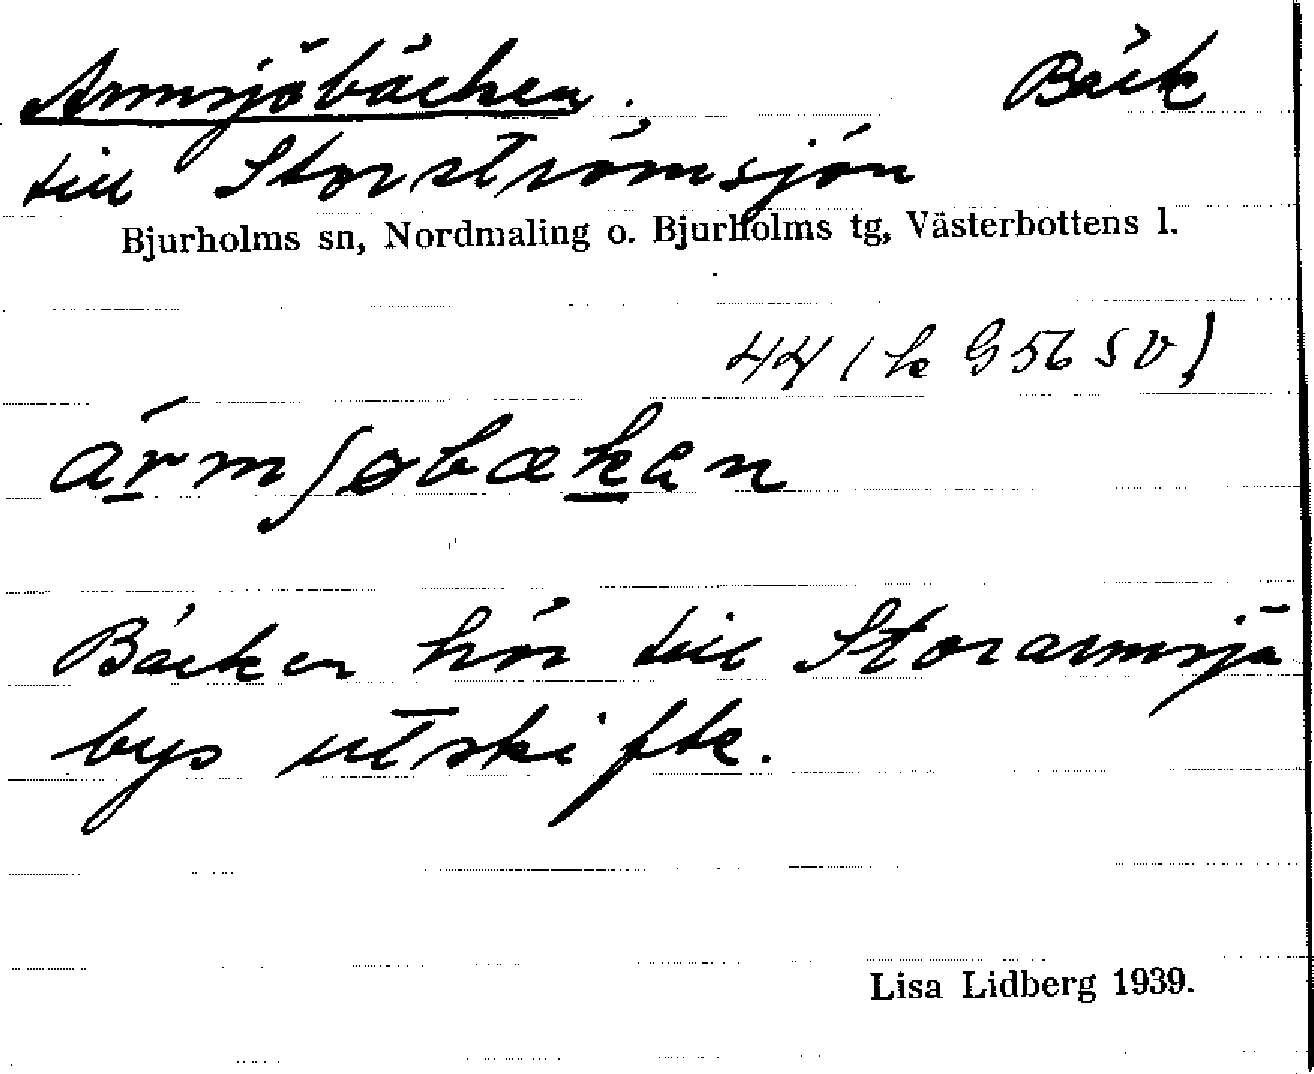 Armsjöbäcken. Bäck
till Storströmsjön
Bjurholms sn, Nordmaling o. Bjurholms tg, Västerbottens l.
44 (k G 56 SV)
àrmʃøbækan
Bäcken hör till Storarmsjö
bys utskifte.
Lisa Lidberg 1939.